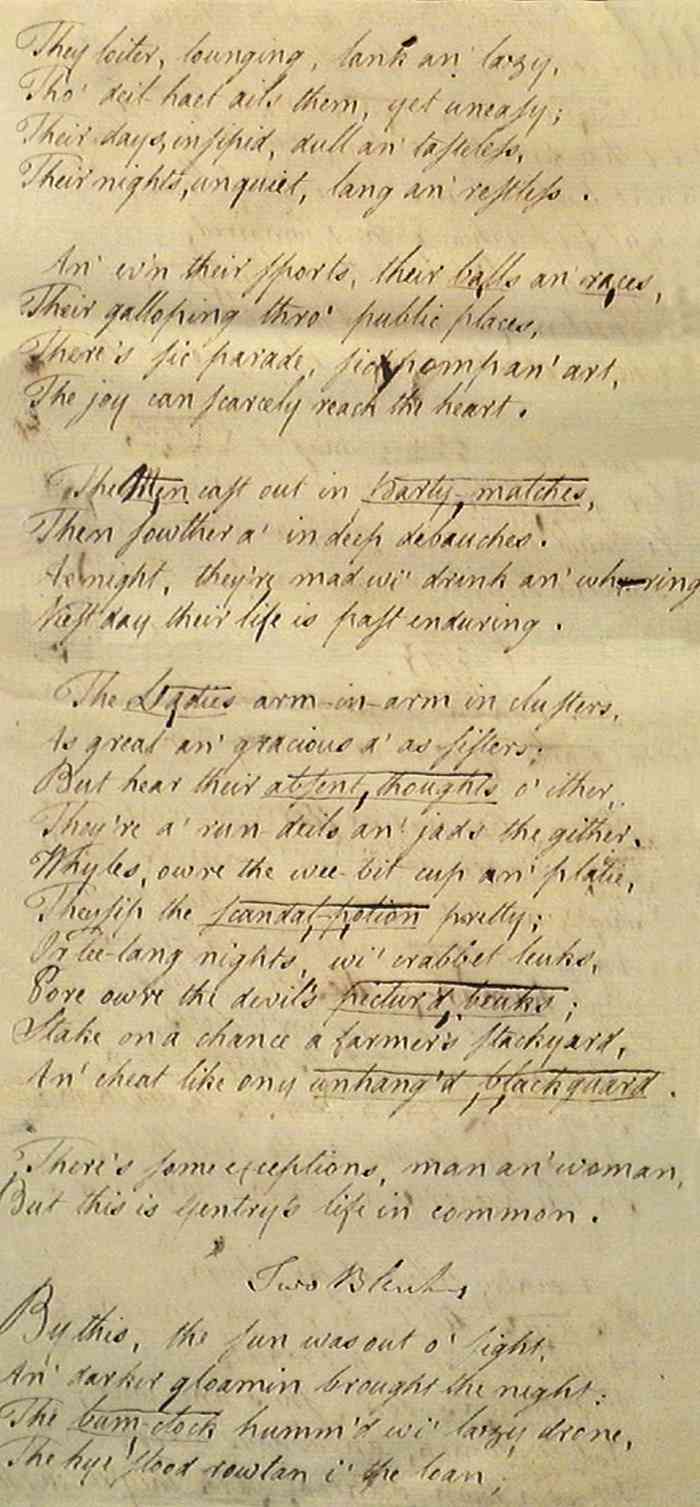 They loiter, lounging, lank an' lazy,
Tho' deil-haet ails them, yet uneasy;
Their days, insipid, dull an' tasteless,
Their nights, unquiet, lang an' restless.
An' ev'n their sports, their balls an' races,
Their galloping thro' public places,
There's sic parade, sic pomp an' art,
The joy can scarcely reach the heart.
The Men cast out in Party-matches,
Then sowther a' in deep debauches.
Ae night, they're mad wi' drink an' wh-ring
Niest day their life is past enduring.
The Ladies arm-in-arm in clusters,
As great an' gracious a' as sisters;
But hear their absent thoughts o' ither,
They're a' run deils an' jads the gither.
Whyles, owre the wee-bit cup an' platie,
They sip the scandal-potion pretty;
Or lee-lang nights, wi' crabbet leuks,
Pore owre the devil's pictur'd beuks;
Stake on a chance a farmer's stackyard,
An' cheat like ony unhang'd blackguard.
There's some exceptions, man an' woman,
But this is Gentry's life in common.
Two Blank
By this, the sun was out o' sight,
An' darker gloamin brought the night:
The bum-clock humm'd wi' lazy drone,
The kye stood rowtan i' the loan;